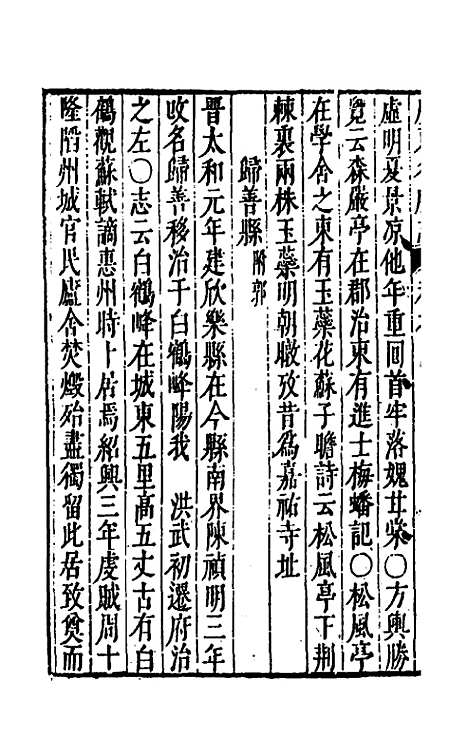 虛明夏景凉他年重回首牢落媿甘棠○方輿勝
覽云森嚴亭在郡治東有進士梅蟠記○松風亭
在學舍之東有玉蘂花蘇子瞻詩云松風亭下荆
棘裏兩株玉蘂明朝暾攷昔爲嘉祐寺址
歸善縣附郭
晋太和元年建欣樂縣在今縣南界陳禎明三年
攺名歸善移治于白鶴峰陽我　洪武初遷府治
之左○志云白鶴峰在城東五里高五丈古有白
鶴觀蘇軾謫惠州時卜居焉紹興三年虔賊周十
隆䧟州城官民廬舍焚燬殆盡獨留此居致奠而